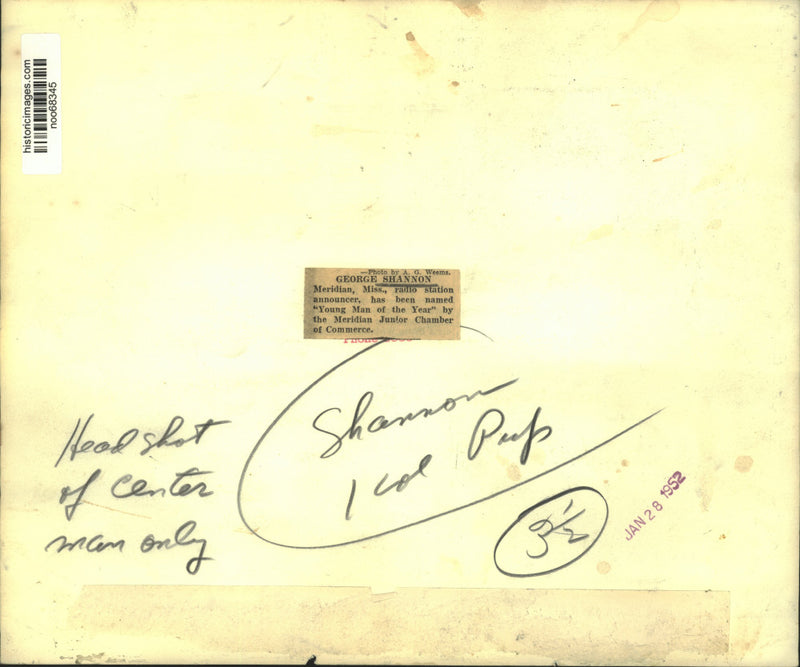 historicimages.com
noo68345
—Photo by A. G. Weems.
GEORGE SHANNON
Meridian, Miss., radio station
announcer, has been named
"Young Man of the Year" by
the Meridian Junior Chamber
of Commerce.
Shannon
1 col
Head shot
of center
man only
3 1/2
JAN 28 1952